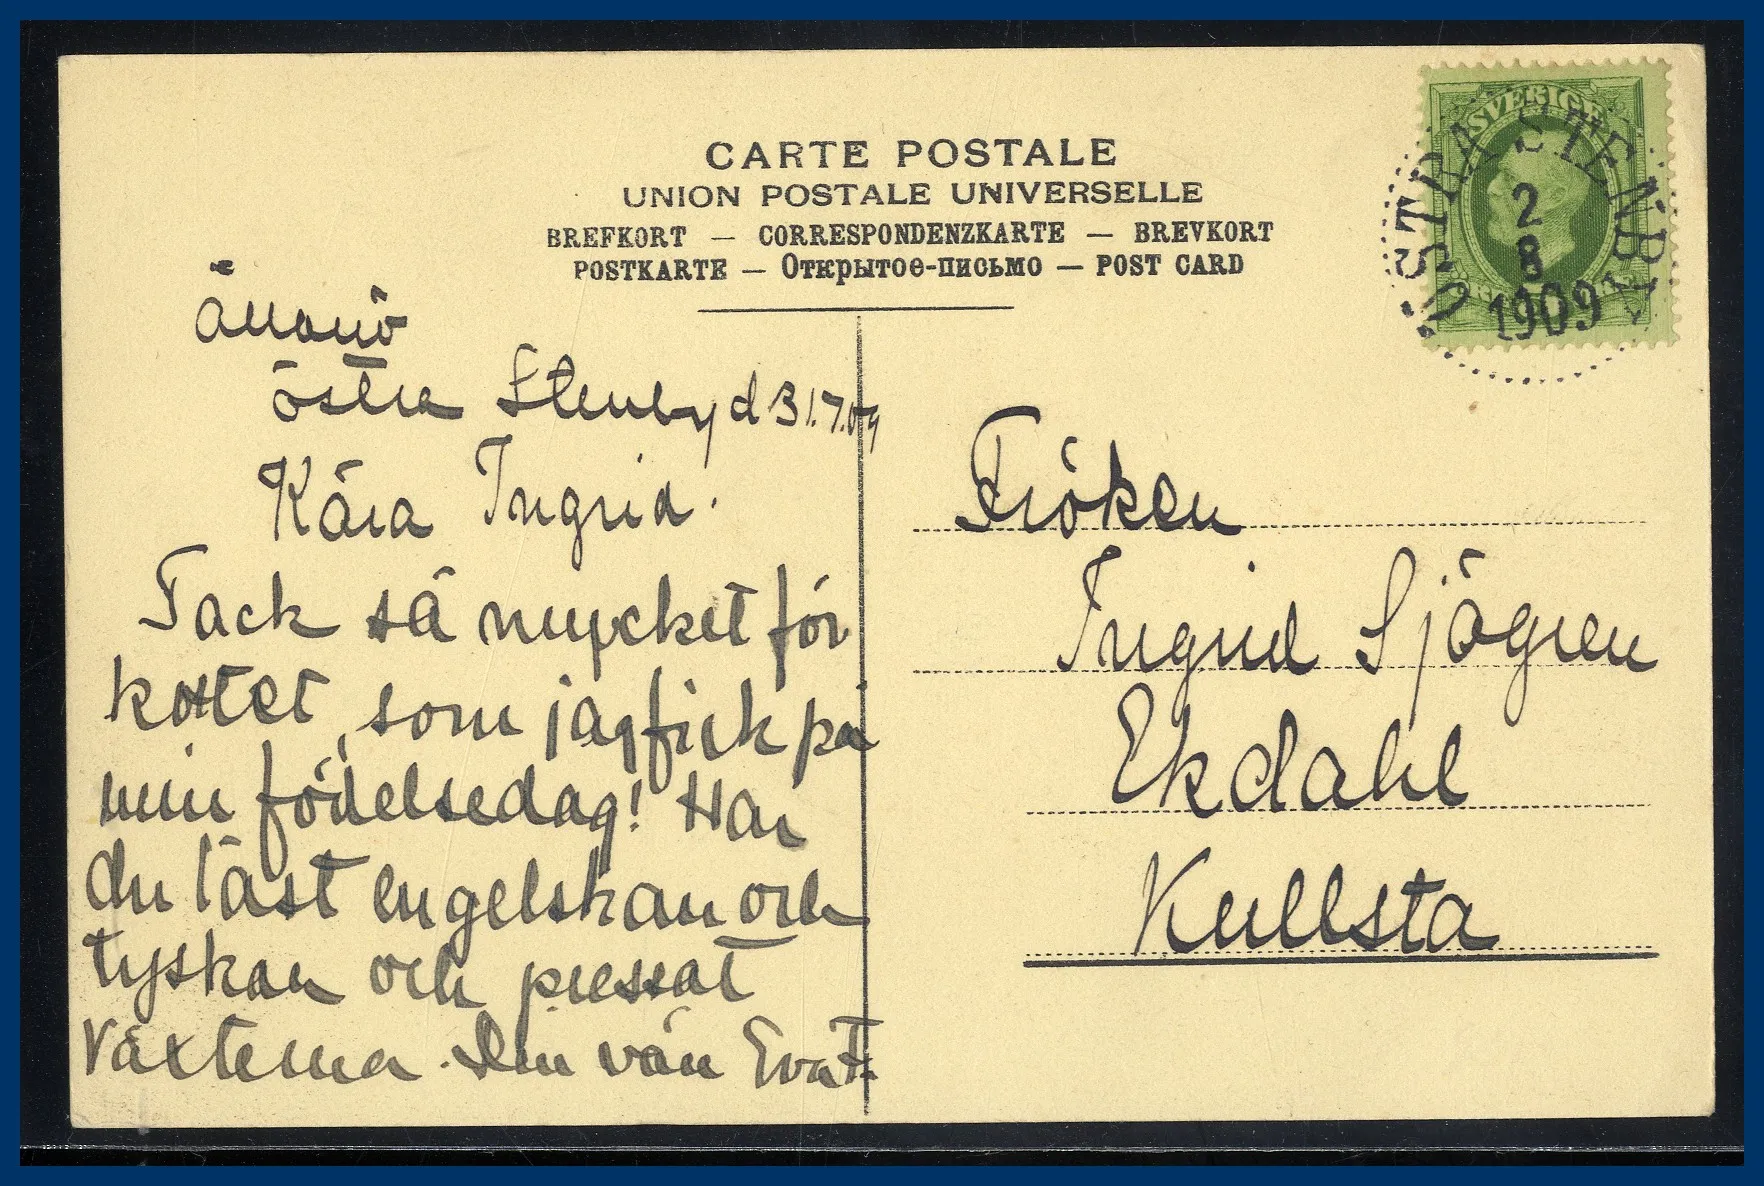 CARTE POSTALE
UNION POSTALE UNIVERSELLE
BREFKORT — CORRESPONDENZKARTE — BREVKORT
POSTKARTE — Открытое-письмо — POST CARD
SVERIGE
ÖSTRA STENBY
2
8
1909
Östra Stenby d 31.7.09
Kära Ingrid.
Tack så mycket för
kortet, som jag fick på
min födelsedag! Har
du läst engelskan och
tyskan och pressat
växterna. Din vän Eva F.
Fröken
Ingrid Sjögren
Ekdahl
Kullsta